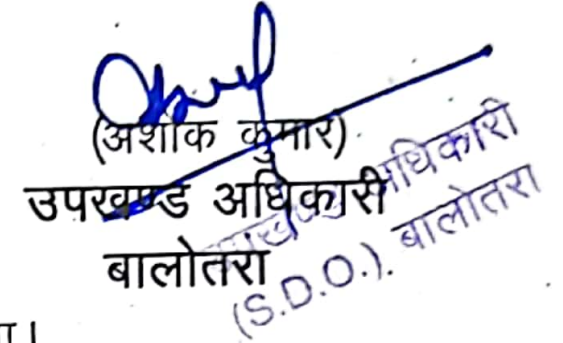 (अशोक कुमार)
उपखण्ड अधिकारी
बालोतरा
अधिकारी
(S.D.O.). बालोतरा